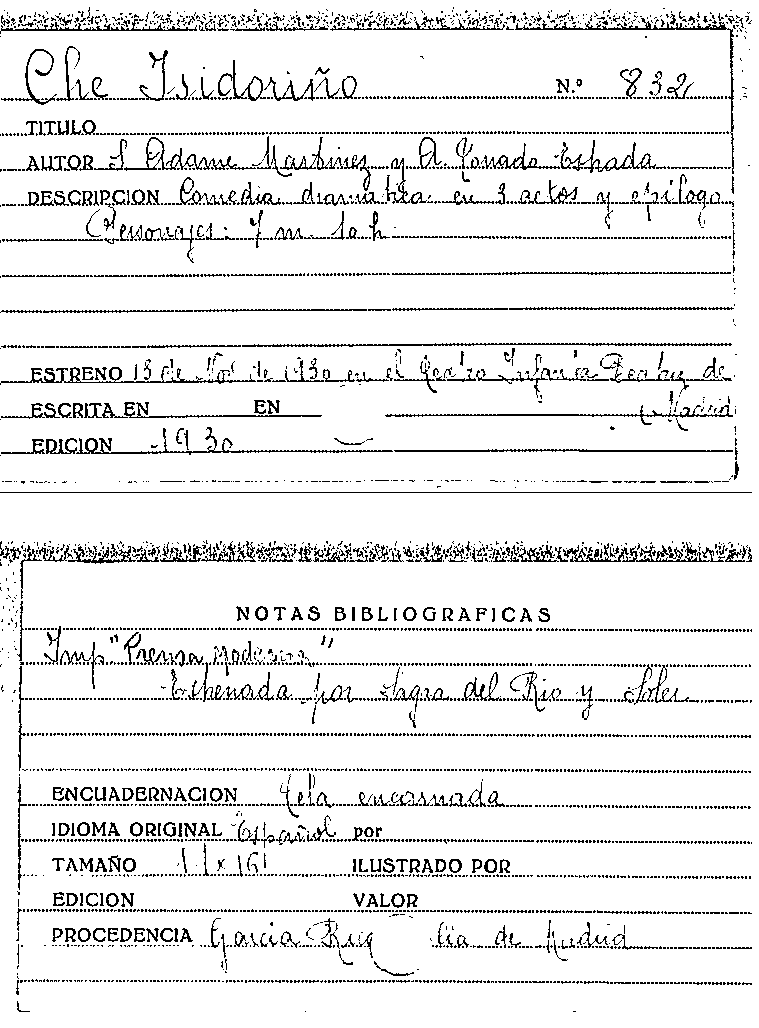 Che Isidoriño N.º 832
TITULO
AUTOR S Adame Martinez y A. Torrado Estrada
DESCRIPCION Comedia dramatica en 3 actos y epílogo
Personajes: 7 m. 10 h.
ESTRENO 13 de Nov de 1930 en el Teatro Infanta Beatriz de
ESCRITA EN EN Madrid
EDICION 1930
NOTAS BIBLIOGRAFICAS
Imp "Prensa Moderna"
Estrenada por Sagra del Rio y Soler
ENCUADERNACION Tela encarnada
IDIOMA ORIGINAL Español por
TAMAÑO 11 x 16 ILUSTRADO POR
EDICION VALOR
PROCEDENCIA Garcia Rico Cia de Madrid